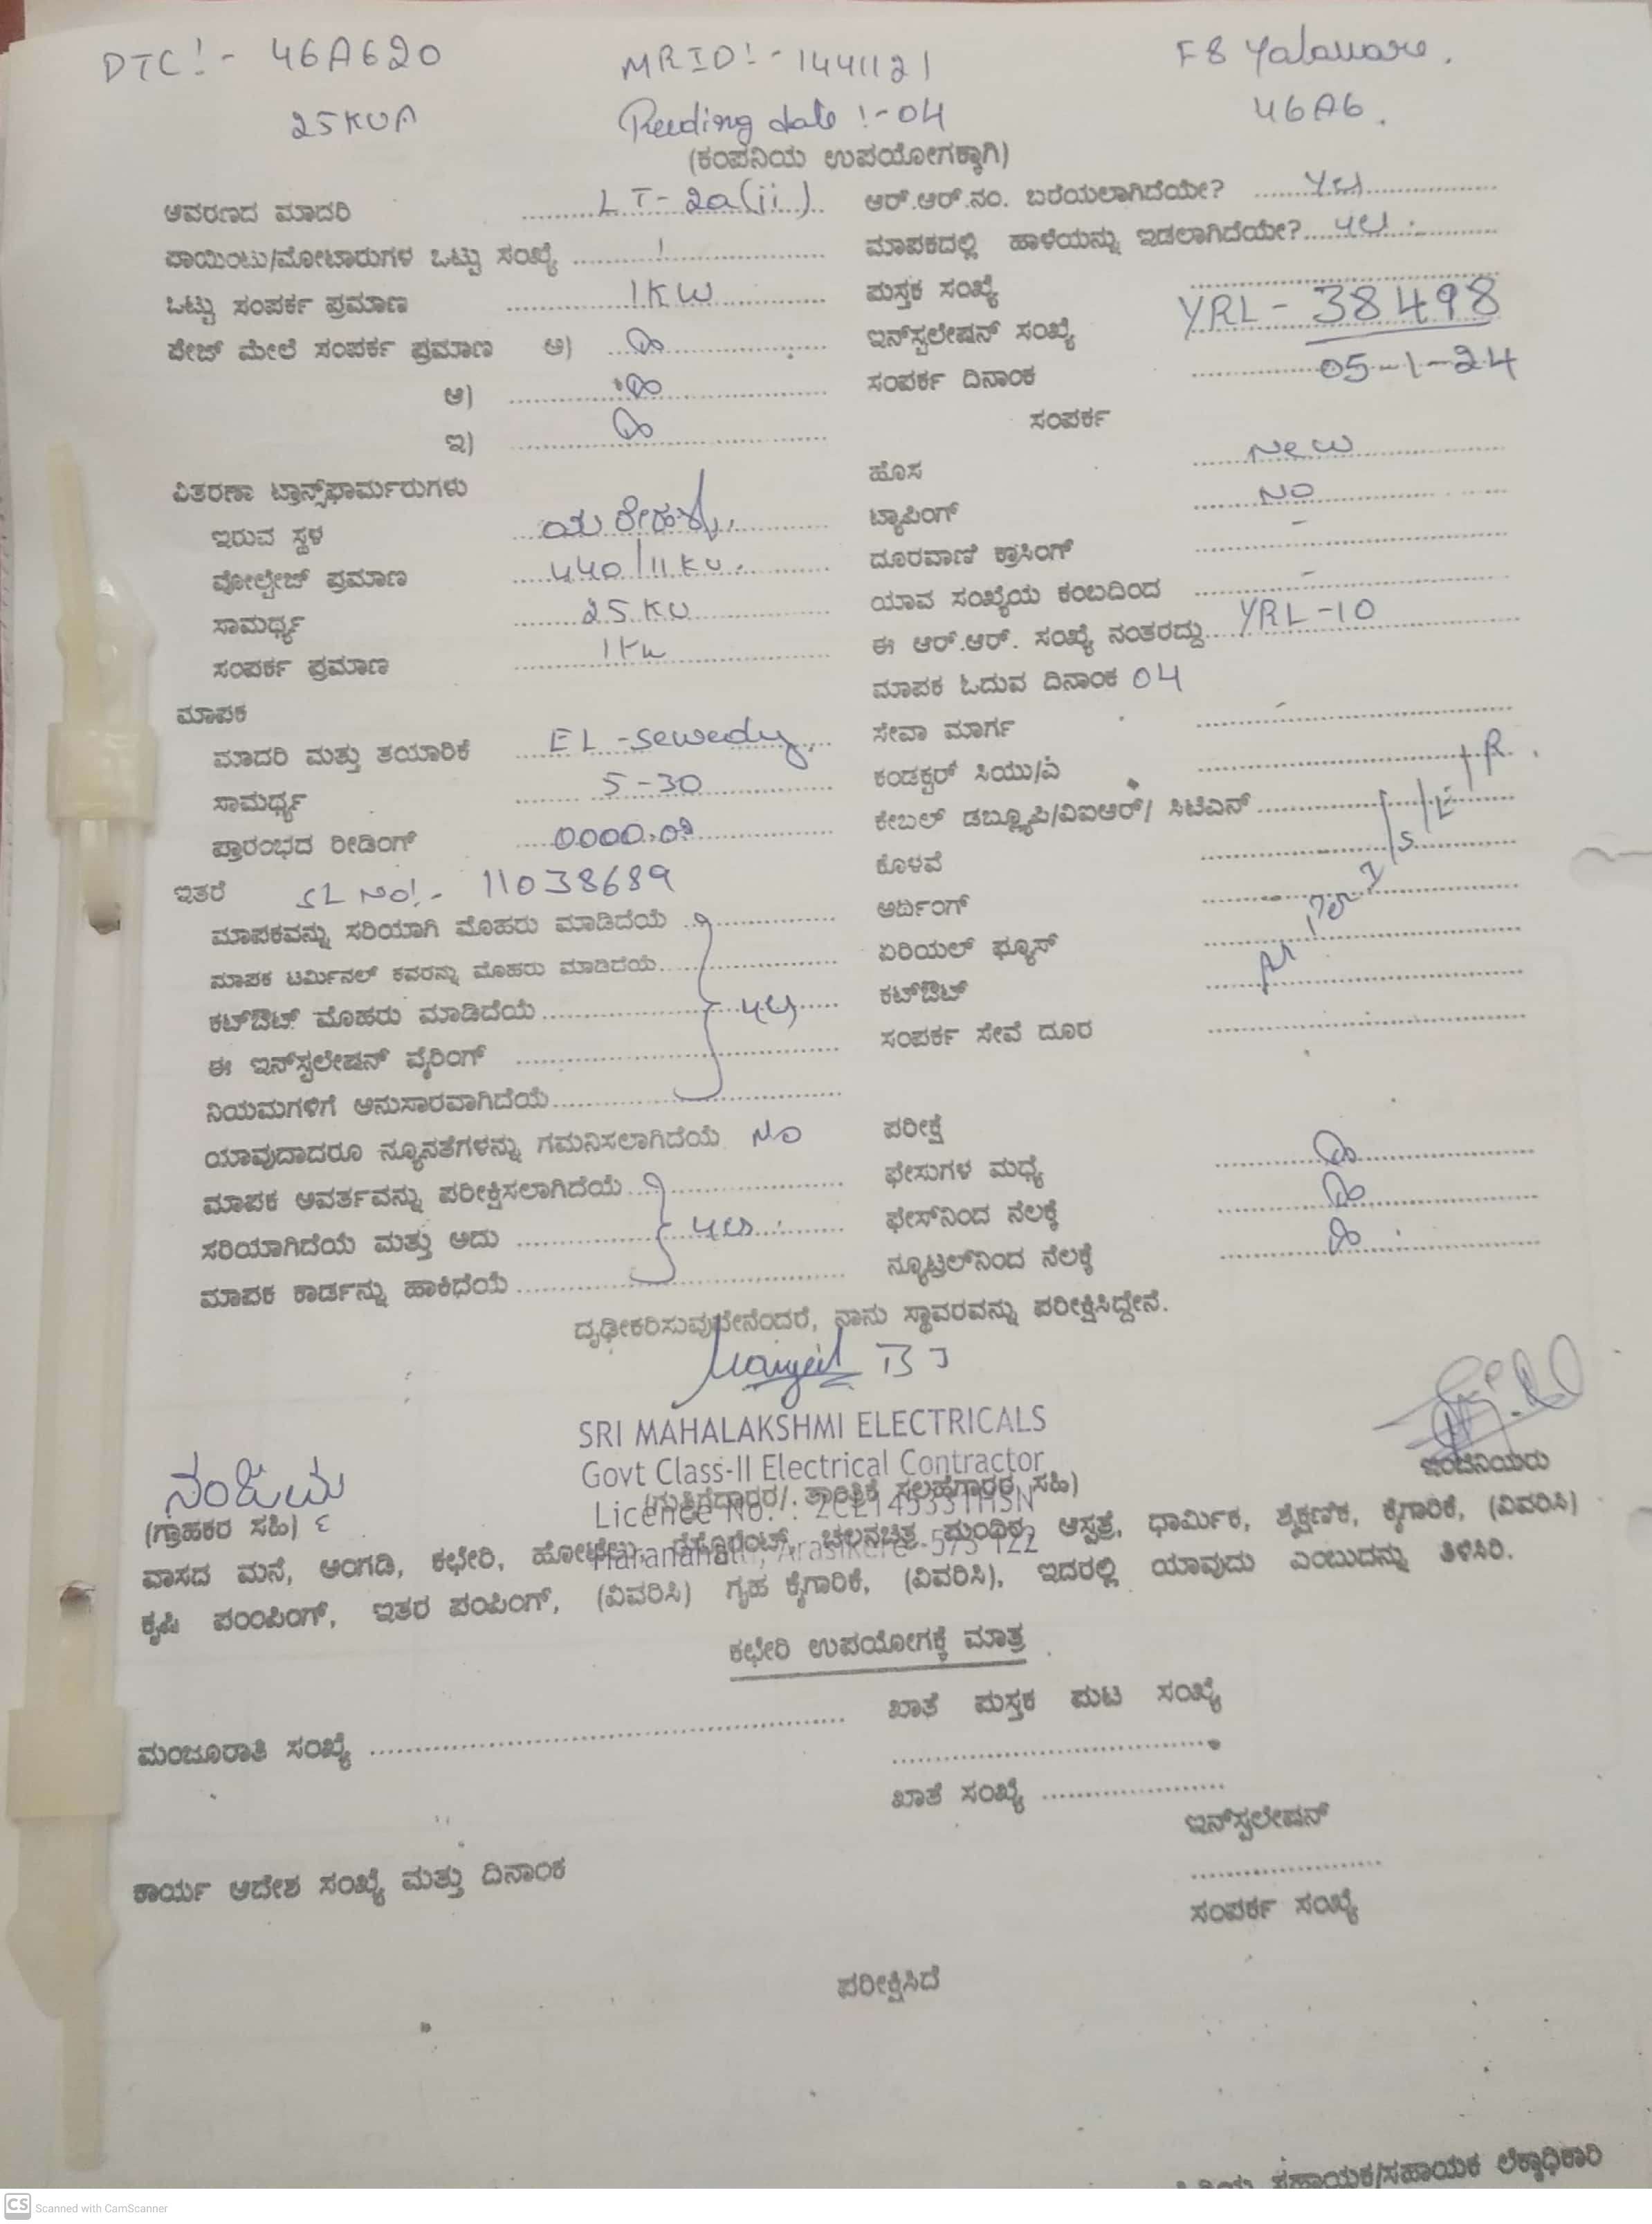 DTC!- 46A620 MRID!- 1441121 F8 Yalavare.
25KVA Reeding date !-04 46A6.
(ಕಂಪನಿಯ ಉಪಯೋಗಕ್ಕಾಗಿ)
ಆವರಣದ ಮಾದರಿ LT-2a(ii) ಆರ್.ಆರ್.ನಂ. ಬರೆಯಲಾಗಿದೆಯೇ? Yes
ಪಾಯಿಂಟು/ಮೋಟಾರುಗಳ ಒಟ್ಟು ಸಂಖ್ಯೆ 1 ಮಾಪಕದಲ್ಲಿ ಹಾಳೆಯನ್ನು ಇಡಲಾಗಿದೆಯೇ? yes
ಒಟ್ಟು ಸಂಪರ್ಕ ಪ್ರಮಾಣ 1KW ಪುಸ್ತಕ ಸಂಖ್ಯೆ
ಪೇಜ್ ಮೇಲೆ ಸಂಪರ್ಕ ಪ್ರಮಾಣ ಅ) ಇನ್‌ಸ್ಟಲೇಷನ್ ಸಂಖ್ಯೆ YRL-38498
ಆ) ಸಂಪರ್ಕ ದಿನಾಂಕ 05-1-24
ಇ) ಸಂಪರ್ಕ
ವಿತರಣಾ ಟ್ರಾನ್ಸ್‌ಫಾರ್ಮರುಗಳು ಹೊಸ New
ಇರುವ ಸ್ಥಳ ಟ್ಯಾಪಿಂಗ್ NO
ವೋಲ್ಟೇಜ್ ಪ್ರಮಾಣ 440/11KV. ದೂರವಾಣಿ ಕ್ರಾಸಿಂಗ್ -
ಸಾಮರ್ಥ್ಯ 25KV ಯಾವ ಸಂಖ್ಯೆಯ ಕಂಬದಿಂದ -
ಸಂಪರ್ಕ ಪ್ರಮಾಣ 1Kw ಈ ಆರ್.ಆರ್. ಸಂಖ್ಯೆ ನಂತರದ್ದು YRL-10
ಮಾಪಕ ಮಾಪಕ ಓದುವ ದಿನಾಂಕ 04
ಮಾದರಿ ಮತ್ತು ತಯಾರಿಕೆ EL-sewedy ಸೇವಾ ಮಾರ್ಗ -
ಸಾಮರ್ಥ್ಯ 5-30 ಕಂಡಕ್ಟರ್ ಸಿಯು/ಎ
ಪ್ರಾರಂಭದ ರೀಡಿಂಗ್ ಕೇಬಲ್ ಡಬ್ಲ್ಯೂಪಿ/ವಿಐಆರ್/ ಸಿಟಿಎಸ್
ಇತರೆ SL No!- 11038689 ಕೊಳವೆ
ಮಾಪಕವನ್ನು ಸರಿಯಾಗಿ ಮೊಹರು ಮಾಡಿದೆಯೆ ಅರ್ಥಿಂಗ್
ಮಾಪಕ ಟರ್ಮಿನಲ್ ಕವರನ್ನು ಮೊಹರು ಮಾಡಿದೆಯೆ ಏರಿಯಲ್ ಫ್ಯೂಸ್
ಕಟ್‌ಔಟ್ ಮೊಹರು ಮಾಡಿದೆಯೆ yes ಕಟ್‌ಔಟ್
ಈ ಇನ್‌ಸ್ಟಲೇಷನ್ ವೈರಿಂಗ್ ಸಂಪರ್ಕ ಸೇವೆ ದೂರ
ನಿಯಮಗಳಿಗೆ ಅನುಸಾರವಾಗಿದೆಯೆ
ಯಾವುದಾದರೂ ನ್ಯೂನತೆಗಳನ್ನು ಗಮನಿಸಲಾಗಿದೆಯೆ NO ಪರೀಕ್ಷೆ
ಮಾಪಕ ಆವರ್ತವನ್ನು ಪರೀಕ್ಷಿಸಲಾಗಿದೆಯೆ ಫೇಸುಗಳ ಮಧ್ಯೆ
ಸರಿಯಾಗಿದೆಯೆ ಮತ್ತು ಅದು yes ಫೇಸ್‌ನಿಂದ ನೆಲಕ್ಕೆ
ಮಾಪಕ ಕಾರ್ಡನ್ನು ಹಾಕಿದೆಯೆ ನ್ಯೂಟ್ರಲ್‌ನಿಂದ ನೆಲಕ್ಕೆ
ದೃಢೀಕರಿಸುವುದೇನೆಂದರೆ, ನಾನು ಸ್ಥಾವರವನ್ನು ಪರೀಕ್ಷಿಸಿದ್ದೇನೆ.
SRI MAHALAKSHMI ELECTRICALS
Govt Class-II Electrical Contractor
(ಗುತ್ತಿಗೆದಾರರ/ ತಾಂತ್ರಿಕ ಸಲಹೆಗಾರರ ಸಹಿ) ಇಂಜಿನಿಯರು
Licence No. :
(ಗ್ರಾಹಕರ ಸಹಿ)
Arasikere- 573 122
ವಾಸದ ಮನೆ, ಅಂಗಡಿ, ಕಛೇರಿ, ಹೋಟೆಲು, ರೆಸ್ಟೋರೆಂಟ್, ಚಲನಚಿತ್ರ ಮಂದಿರ, ಆಸ್ಪತ್ರೆ, ಧಾರ್ಮಿಕ, ಶೈಕ್ಷಣಿಕ, ಕೈಗಾರಿಕೆ, (ವಿವರಿಸಿ)
ಕೃಷಿ ಪಂಪಿಂಗ್, ಇತರ ಪಂಪಿಂಗ್, (ವಿವರಿಸಿ) ಗೃಹ ಕೈಗಾರಿಕೆ, (ವಿವರಿಸಿ), ಇದರಲ್ಲಿ ಯಾವುದು ಎಂಬುದನ್ನು ತಿಳಿಸಿರಿ.
ಕಛೇರಿ ಉಪಯೋಗಕ್ಕೆ ಮಾತ್ರ
ಮಂಜೂರಾತಿ ಸಂಖ್ಯೆ ಖಾತೆ ಪುಸ್ತಕ ಪುಟ ಸಂಖ್ಯೆ
ಖಾತೆ ಸಂಖ್ಯೆ
ಇನ್‌ಸ್ಟಲೇಷನ್
ಕಾರ್ಯ ಆದೇಶ ಸಂಖ್ಯೆ ಮತ್ತು ದಿನಾಂಕ
ಸಂಪರ್ಕ ಸಂಖ್ಯೆ
ಪರೀಕ್ಷಿಸಿದೆ
ಸಹಾಯಕ/ಸಹಾಯಕ ಲೆಕ್ಕಾಧಿಕಾರಿ
CS Scanned with CamScanner